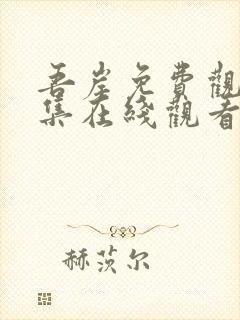 吾岸免費觀
集在綫觀看
赫茨尔